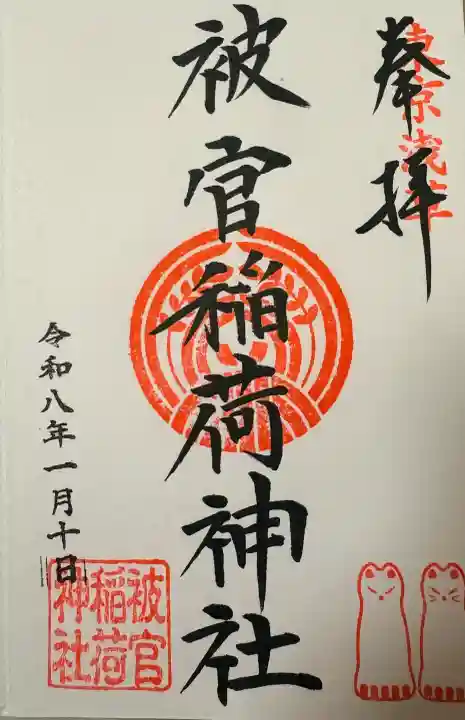 奉拝
東京浅草
被官稲荷神社
令和八年一月十日
被官
稲荷
神社